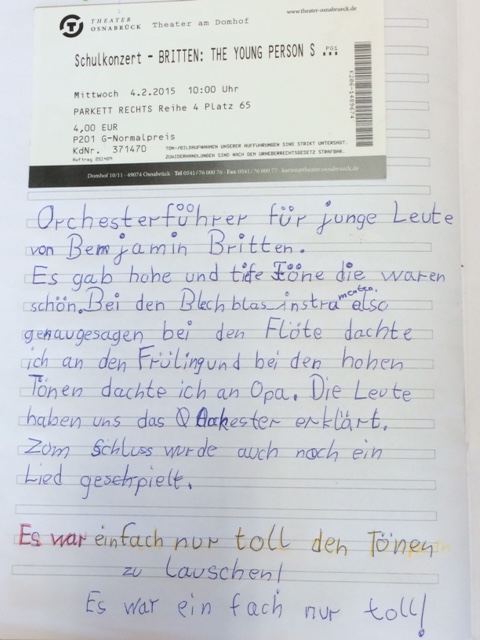 THEATER
OSNABRÜCK Theater am Domhof
www.theater-osnabrueck.de
Schulkonzert - BRITTEN: THE YOUNG PERSON S ... PG1
Mittwoch 4.2.2015 10:00 Uhr
PARKETT RECHTS Reihe 4 Platz 65
4,00 EUR
P201 G-Normalpreis
KdNr. 371470
TON-/BILDAUFNAHMEN UNSERER AUFFÜHRUNGEN SIND STRIKT UNTERSAGT.
ZUWIDERHANDLUNGEN SIND NACH DEM URHEBERRECHTSGESETZ STRAFBAR.
Domhof 10/11 · 49074 Osnabrück · Tel 0541/76 000 76 · Fax 0541/76 000 77 ·
Orchesterföhrer für junge Leute
von Bemjamin Britten.
Es gab hohe und tife Töne die waren
schön. Bei den Blechblasinstramenten also
genaugesagen bei den Flöte dachte
ich an den Frülingund bei den hohen
Tönen dachte ich an Opa. Die Leute
haben uns das Oakester erklärt.
Zom Schluss wurde auch noch ein
Lied geschpielt.
Es war einfach nur toll den Tönen
zu lauschen!
Es war ein fach nur toll!